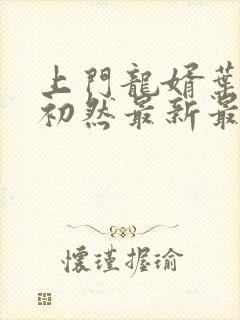 上門龍婿葉
初然最新最
懷瑾握瑜